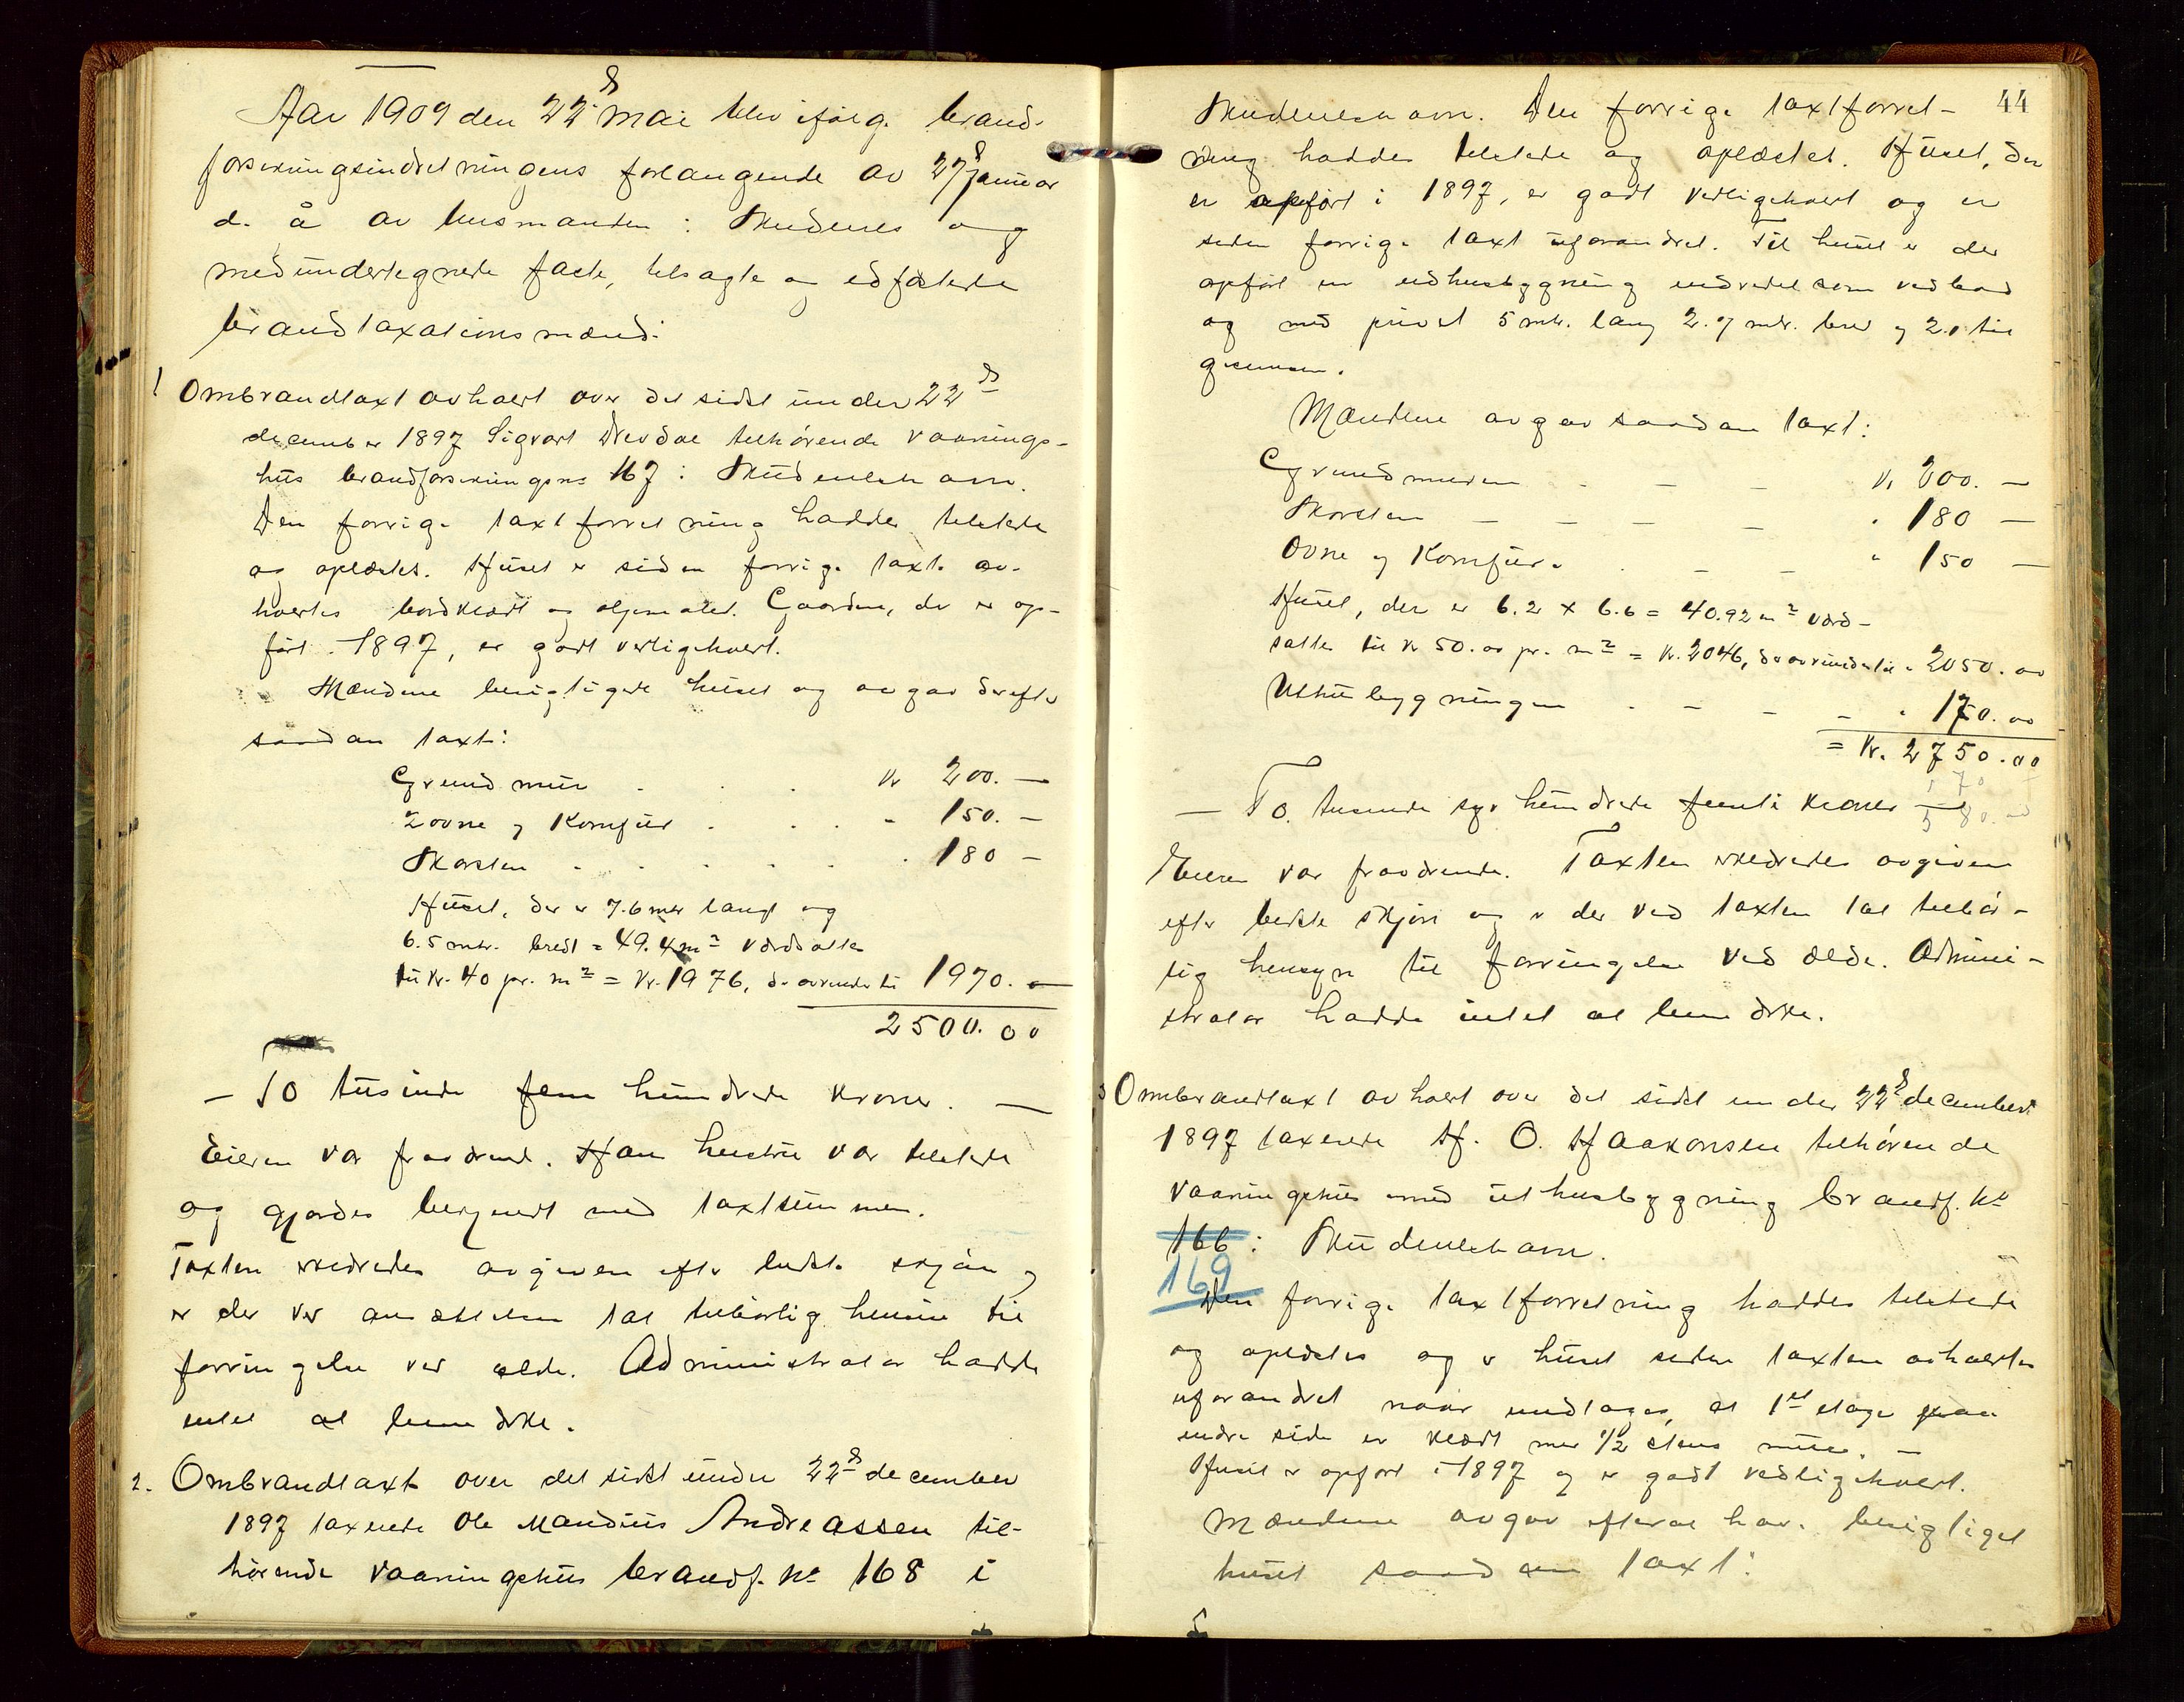 Aar 1909 den 22d mai blev ifølge brand-
forsikringsindretningens forlangende av 27d januar
d. å av husmanden i Skudenes og
medundertegnede faste, tilsagte og edfæstede
brandtaxationsmænd:
1 Ombrandtaxt avholdt over det sidst under 22d
december 1897 Sigvart tilhørende vaanings-
hus brandforsikringsno 167 i Skudeneshavn.
Den forrige taxtforretning haddes tilstede
og oplæstes. Huset er siden forrige taxt av-
holdtes bordklædt og oljemalet. Gaarden, der er op-
ført 1897, er godt vedligeholdt.
Mændene besigtigede huset og avgav derefter
saadan taxt:
Grundmur . . . kr 200. —
2 ovne og Komfur . . . - 150. —
Skorsten . . . . . . 180 —
Huset, der er 7.6 mtr langt og
6.5 mtr. bredt = 49.4 m2 værdsattes
til kr. 40 pr. m2 = kr. 1976, der avrundes til 1970. —
2500. 00
— To tusinde fem hundrede kroner. —
Eieren var fraværende. Hans hustru var tilstede
og gjordes bekjendt med taxtsummen.
Taxten erklæredes avgiven efter bedste skjøn og
er der ved ansættelsen tat tilbørlig hensyn til
forringelse ved ælde. Administrator hadde
intet at bemærke.
2. Ombrandtaxt over det sidst under 22d december
1897 taxerede Ole Mandius Andreassen til-
hørende vaaningshus brandf. No 168 i
44
Skudeneshavn. Den forrige taxtforret-
ning haddes tilstede og oplæstes. Huset, der
er opført i 1897, er godt vedligeholdt og er
siden forrige taxt uforandret. Til huset er der
opført en udhusbygning indredet som vedbod
og med privet 5 mtr. lang 2.7 mtr. bred og 2.0 til
gesimsen.
Mændene avgav saadan taxt:
Grundmuren . — — — kr 200. —
Skorsten — — — — . 180 —
Ovne og Komfur. . — — " 150 —
Huset, der er 6.2 x 6.6 = 40.92 m2 værd-
sattes til kr 50.00 pr. m2 = kr. 2046, der avrundes til - 2050. 00
Uthusbygningen . — — — . 170. 00
= Kr. 2750.00
— To tusinde syv hundrede femti kroner —
Eieren var fraværende. Taxten erklæredes avgiven
efter bedste skjøn og er der ved taxten tat tilbør-
lig hensyn til forringelse ved ælde. Admini-
strator hadde intet at bemærke.
3 Ombrandtaxt avholdt over det sidst under 22d december
1897 taxerede H. O. Haakonsen tilhørende
vaaningshus med uthusbygning brandf. No
166 i Skudeneshavn.
169
Den forrige taxtforretning haddes tilstede
og oplæstes og er huset siden taxten avholdtes
uforandret naar undtages, at 1st etage paa
indre side er klædt med 1/2 stens mur. —
Huset er opført i 1897 og er godt vedligeholdt.
Mændene avgav efter at have besigtiget
huset saadan taxt: